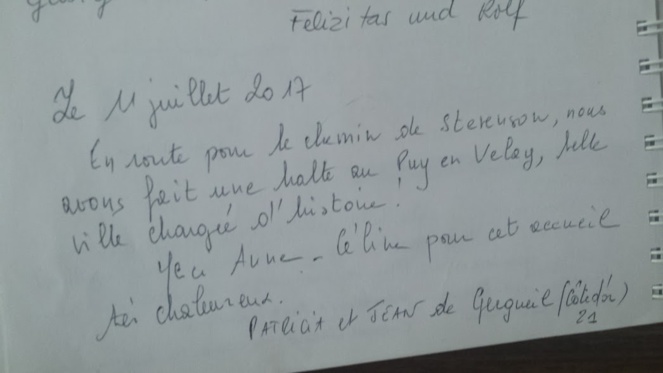 Felizitas und Rolf
Le 11 juillet 2017
En route pour le chemin de Stevenson, nous
avons fait une halte au Puy en Velay, belle
ville chargée d'histoire !
Merci Anne-Céline pour cet accueil
très chaleureux.
PATRICIA et JEAN de Gergueil (Côte d'or)
21